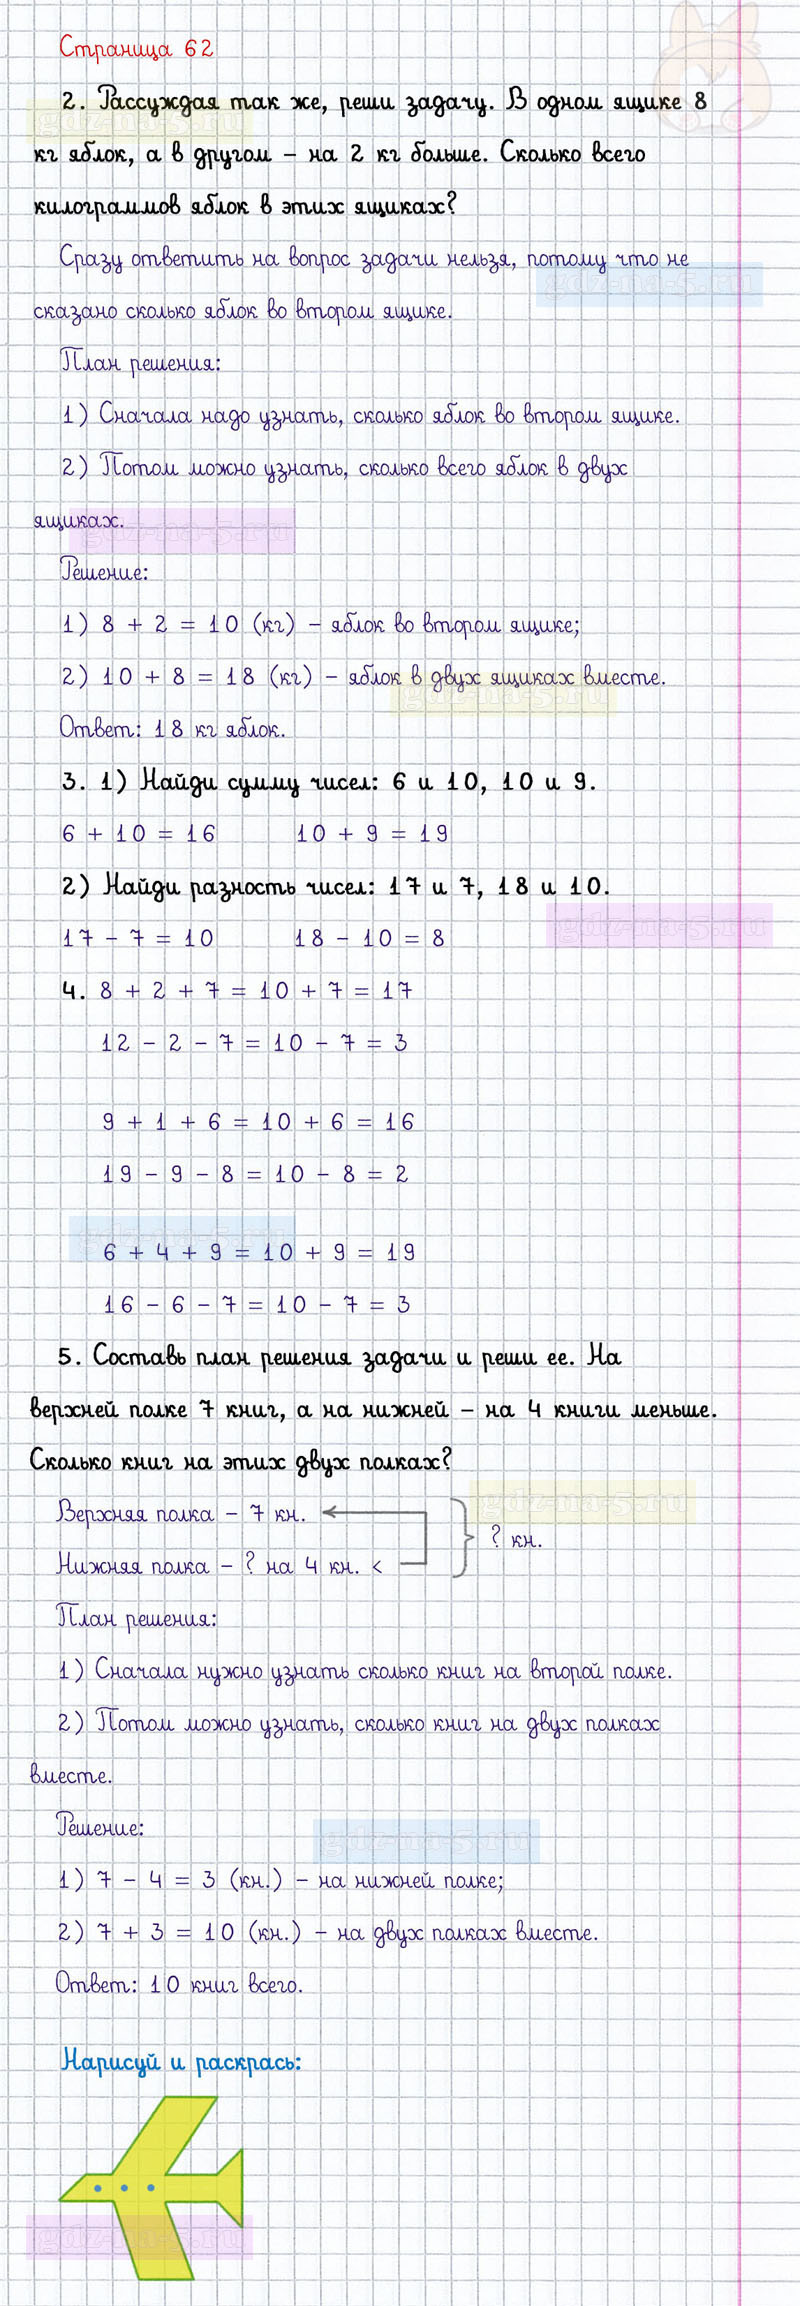 Страница 62
2. Рассуждая так же, реши задачу. В одном ящике 8
gdz-na-5.ru
кг яблок, а в другом – на 2 кг больше. Сколько всего
килограммов яблок в этих ящиках?
Сразу ответить на вопрос задачи нельзя, потому что не
gdz-na-5.ru
сказано сколько яблок во втором ящике.
План решения:
1) Сначала надо узнать, сколько яблок во втором ящике.
2) Потом можно узнать, сколько всего яблок в двух
ящиках.
gdz-na-5.ru
Решение:
1) 8 + 2 = 10 (кг) – яблок во втором ящике;
2) 10 + 8 = 18 (кг) – яблок в двух ящиках вместе.
gdz-na-5.ru
Ответ: 18 кг яблок.
3. 1) Найди сумму чисел: 6 и 10, 10 и 9.
6 + 10 = 16 10 + 9 = 19
2) Найди разность чисел: 17 и 7, 18 и 10.
gdz-na-5.ru
17 – 7 = 10 18 – 10 = 8
4. 8 + 2 + 7 = 10 + 7 = 17
12 – 2 – 7 = 10 – 7 = 3
9 + 1 + 6 = 10 + 6 = 16
19 – 9 – 8 = 10 – 8 = 2
gdz-na-5.ru
6 + 4 + 9 = 10 + 9 = 19
16 – 6 – 7 = 10 – 7 = 3
5. Составь план решения задачи и реши ее. На
верхней полке 7 книг, а на нижней – на 4 книги меньше.
Сколько книг на этих двух полках?
gdz-na-5.ru
Верхняя полка – 7 кн.
? кн.
Нижняя полка – ? на 4 кн. <
План решения:
1) Сначала нужно узнать сколько книг на второй полке.
2) Потом можно узнать, сколько книг на двух полках
вместе.
Решение:
gdz-na-5.ru
1) 7 – 4 = 3 (кн.) – на нижней полке;
2) 7 + 3 = 10 (кн.) – на двух полках вместе.
Ответ: 10 книг всего.
Нарисуй и раскрась:
gdz-na-5.ru